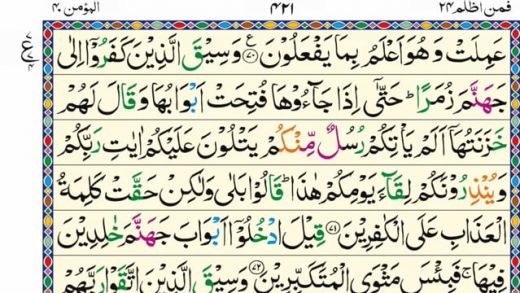 فمن اظلم ۲۴ ۴۲۱ المؤمن ۴۰
عَمِلَتْ وَهُوَ اَعْلَمُ بِمَا يَفْعَلُوْنَ ۟﴿۷۰﴾ وَسِيْقَ الَّذِيْنَ كَفَرُوْۤا اِلٰى
جَهَنَّمَ زُمَرًا ؕ حَتّٰۤى اِذَا جَآءُوْهَا فُتِحَتْ اَبْوَابُهَا وَقَالَ لَهُمْ
خَزَنَتُهَاۤ اَلَمْ يَاْتِكُمْ رُسُلٌ مِّنْكُمْ يَتْلُوْنَ عَلَيْكُمْ اٰيٰتِ رَبِّكُمْ
وَيُنْذِرُوْنَكُمْ لِقَآءَ يَوْمِكُمْ هٰذَا ؕ قَالُوْا بَلٰى وَلٰكِنْ حَقَّتْ كَلِمَةُ
الْعَذَابِ عَلَى الْكٰفِرِيْنَ ﴿۷۱﴾ قِيْلَ ادْخُلُوْۤا اَبْوَابَ جَهَنَّمَ خٰلِدِيْنَ
فِيْهَا ۚ فَبِئْسَ مَثْوَى الْمُتَكَبِّرِيْنَ ﴿۷۲﴾ وَسِيْقَ الَّذِيْنَ اتَّقَوْا رَبَّهُمْ